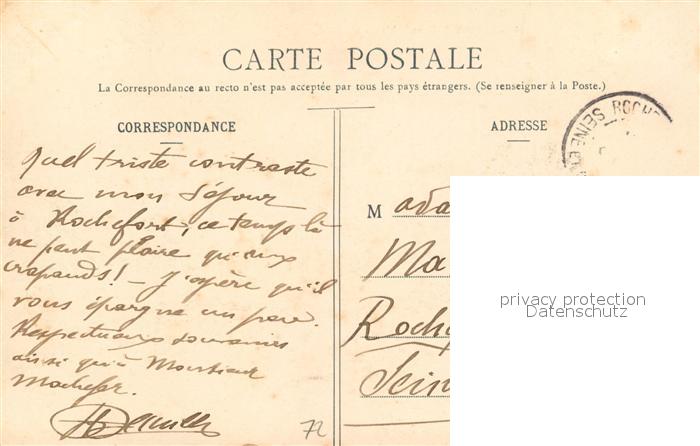 CARTE POSTALE
La Correspondance au recto n'est pas acceptée par tous les pays étrangers. (Se renseigner à la Poste.)
CORRESPONDANCE
ADRESSE
Quel triste contraste
avec mon séjour
à Rochefort, ce temps là
ne peut plaire qu'aux
crapauds! - J'espère qu'il
vous épargne un peu.
Respectueux souvenirs
ainsi qu'à Monsieur
M ada
Ma
Roche
Sein
ROCHE
SEINE
privacy protection
Datenschutz
72